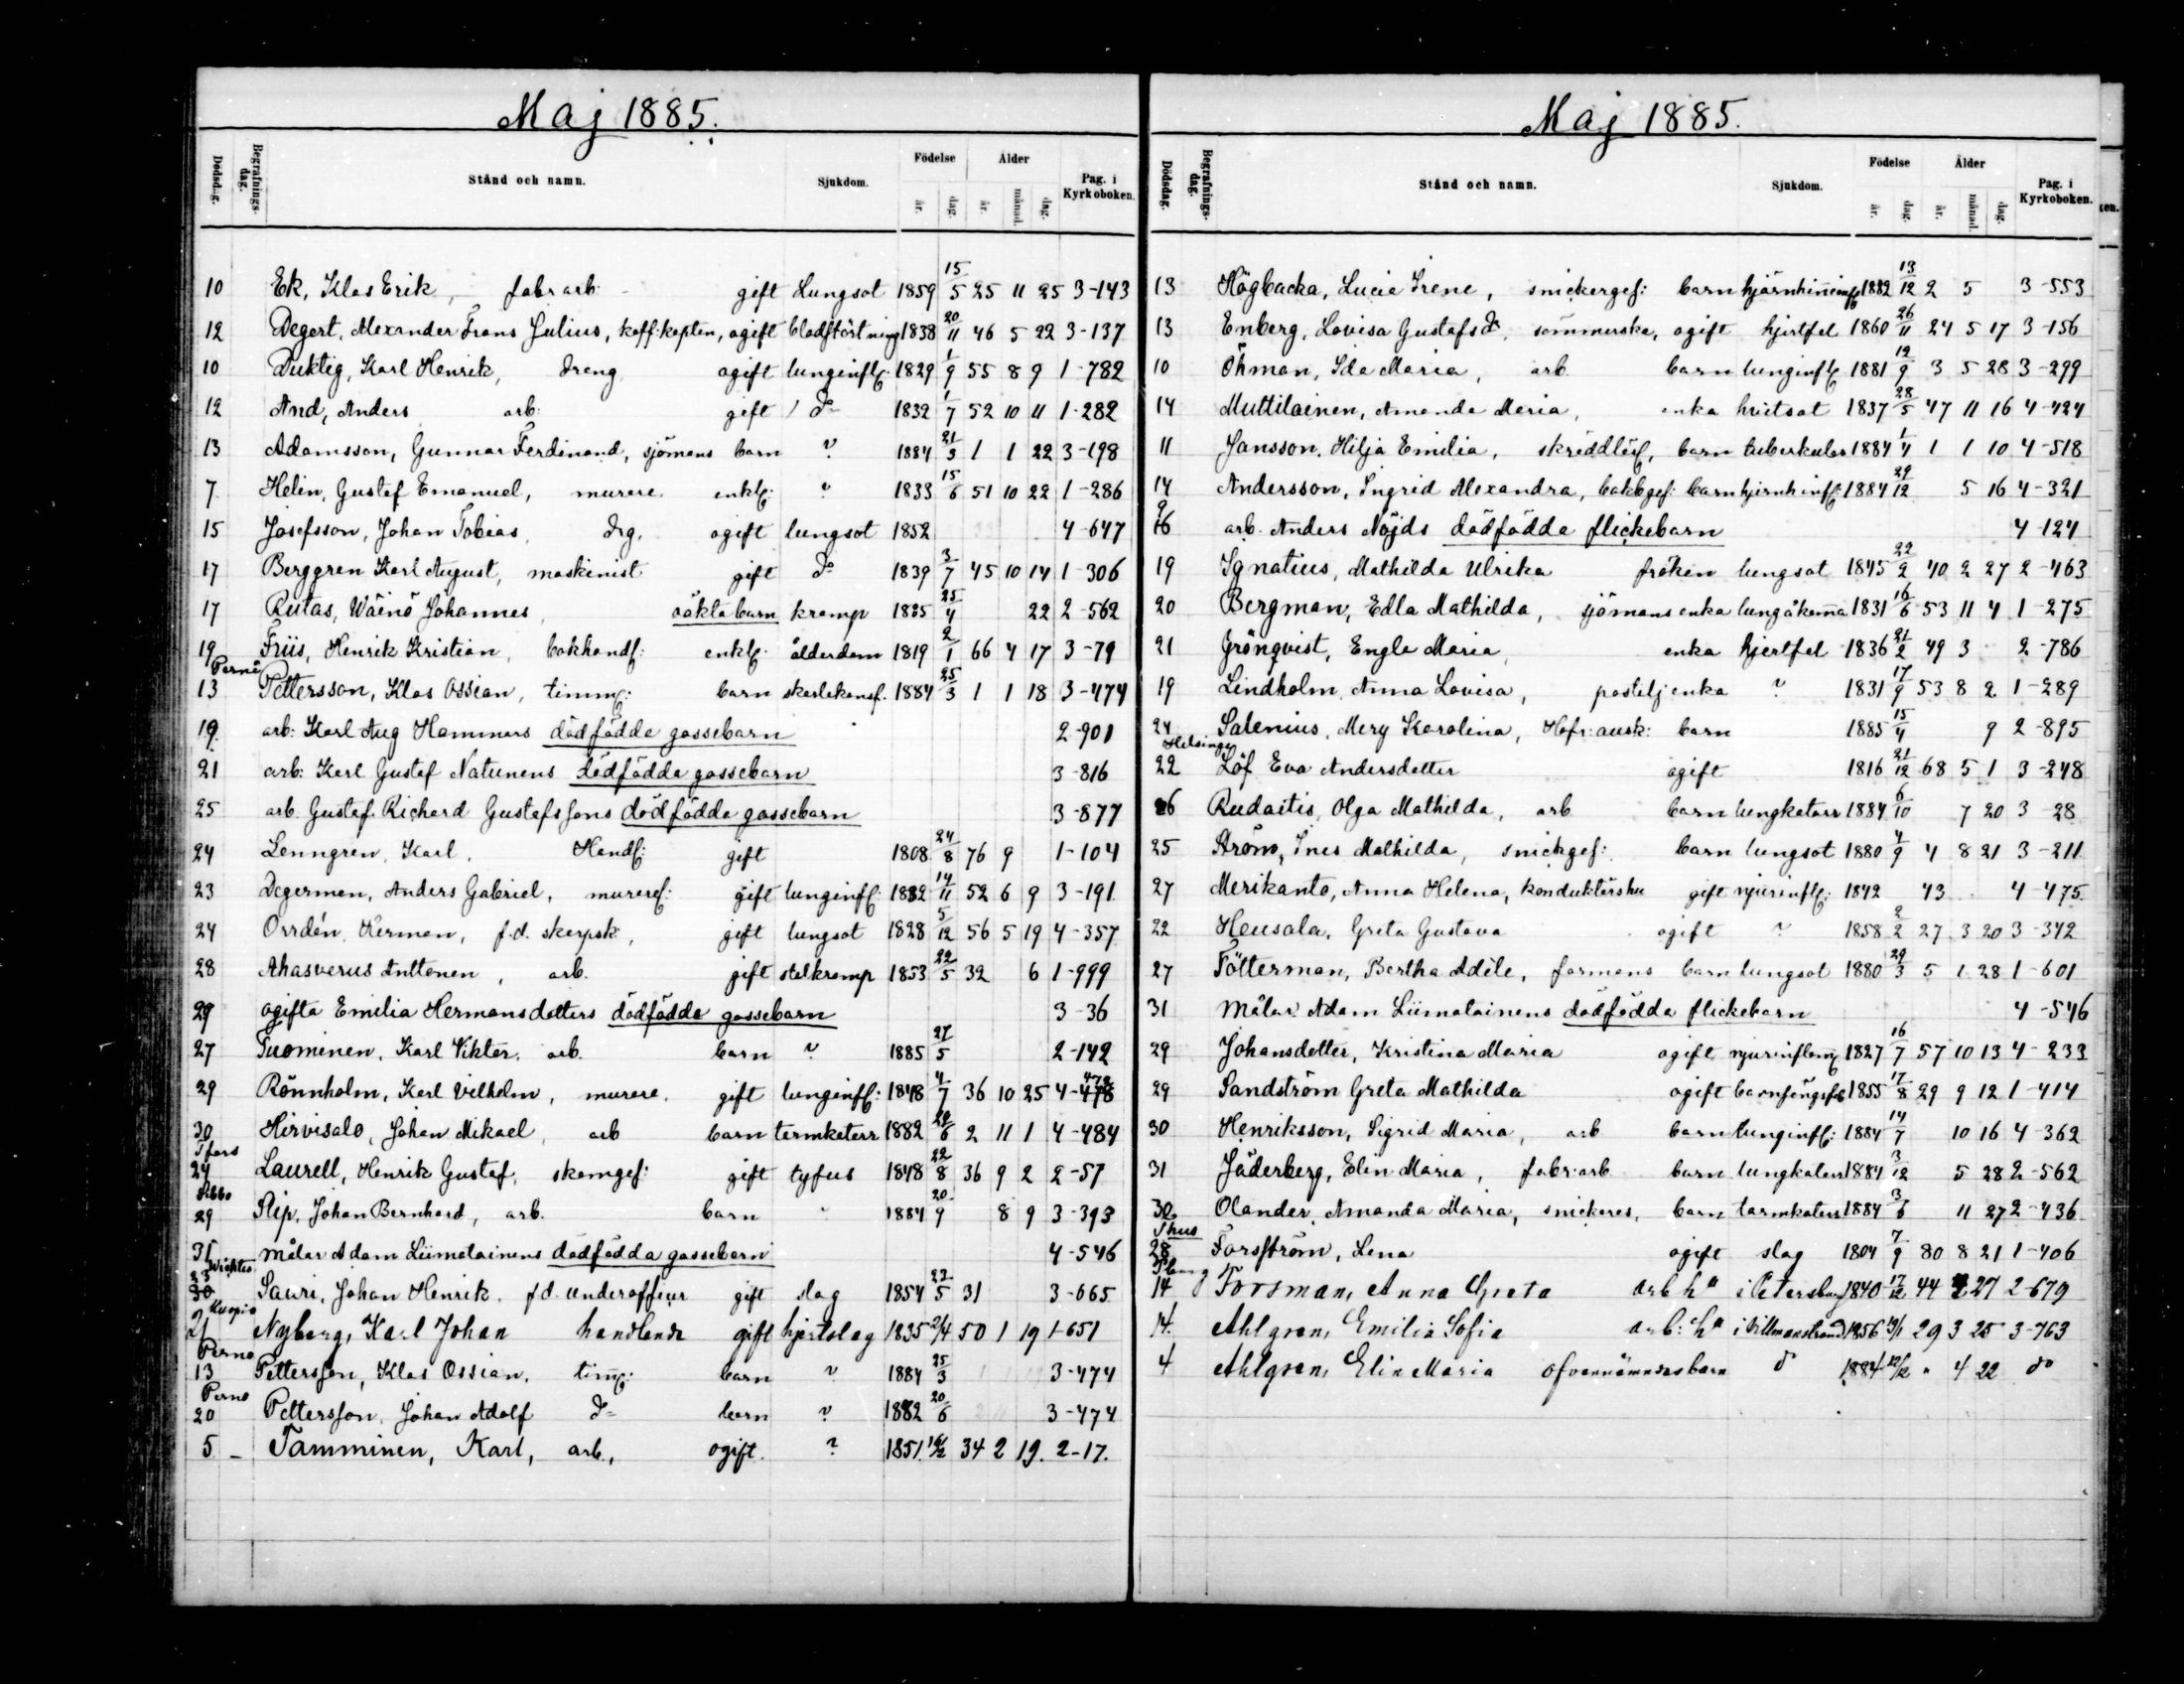 Maj 1885.
Dödsdag. Begrafnings-dag. Stånd och namn. Sjukdom. Födelse år. dag. Ålder år. månad. dag. Pag. i Kyrkoboken.
10 Ek, Klas Erik, fabr arb. gift Lungsot 1859 15/5 25 11 25 3-143
12 Degert, Alexander Frans Julius, koff-kapten, ogift blodstörtning 1838 20/11 46 5 22 3-137
10 Duktig, Karl Henrik, dreng ogift lunginfl: 1829 1/9 55 8 9 1-782
12 And, Anders arb: gift do 1832 1/7 52 10 11 1-282
13 Adamsson, Gunnar Ferdinand, sjömans barn ? 1884 21/3 1 1 22 3-198
7 Helin, Gustaf Emanuel, murare enkl: ? 1833 15/6 51 10 22 1-286
15 Josefsson, Johan Tobias, drg. ogift lungsot 1852 4-647
17 Berggren Karl August, maskinist gift do 1839 3/7 45 10 14 1-306
17 Rutas, Wäinö Johannes, oäkta barn kramp 1885 25/4 22 2-562
19 Friis, Henrik Kristian, bokhandl: enkl: ålderdom 1819 2/1 66 4 17 3-79
Pernå
13 Pettersson, Klas Ossian, timmf: barn skarlakansf. 1884 25/3 1 1 18 3-474
19. arb: Karl Aug Hammars dödfödda gossebarn 2-901
21 arb: Karl Gustaf Natunens dödfödda gossebarn 3-816
25 arb. Gustaf Richard Gustafssons dödfödda gossebarn 3-877
24 Lenngren, Karl, Handl: gift 1808 24/8 76 9 1-104
23 Degerman, Anders Gabriel, murare: gift lunginfl: 1832 14/11 52 6 9 3-191
24 Orrdén, Herman, f.d. skarpsk, gift lungsot 1828 5/12 56 5 19 4-357
28 Ahasverus Anttonen, arb. gift stelkramp 1853 22/5 32 6 1-999
29 ogifta Emilia Hermansdotters dödfödda gossebarn 3-36
27 Tuominen, Karl Viktor, arb. barn ? 1885 27/5 2-142
29 Rönnholm, Karl Vilhelm, murare, gift lunginfl: 1848 4/7 36 10 25 4-478 472
30 Hirvisalo, Johan Mikael, arb barn tarmkatarr 1882 29/6 2 11 1 4-484
Tfors
24 Laurell, Henrik Gustaf, skomgef: gift tyfus 1848 22/8 36 9 2 2-57
Sibbo
29 Slip, Johan Bernhard, arb. barn 1884 20/9 8 9 3-393
31 målar Adam Liimatainens dödfödda gossebarn 4-546
Wichtis
23 30 Sauri, Johan Henrik, f.d. underofficer gift slag 1854 22/5 31 3-665
Kuopio
21 Nyberg, Karl Johan handlande gift hjertslag 1835 2/4 50 1 19 1-651
Perno
13 Pettersson, Klas Ossian, timmf: barn ? 1884 25/3 3-474
Perno
20 Pettersson, Johan Adolf do barn ? 1882 20/6 3-474
5 - Tamminen, Karl, arb., ogift. ? 1851 16/2 34 2 19. 2-17.
Maj 1885.
Dödsdag. Begrafnings-dag. Stånd och namn. Sjukdom. Födelse år. dag. Ålder år. månad. dag. Pag. i Kyrkoboken.
13 Högbacka, Lucia Irene, snickergef: barn hjärnhinneinfl 1882 13/12 2 5 3-553
13 Enberg, Lovisa Gustafsdr, sömmerska, ogift hjertfel 1860 26/11 24 5 17 3-156
10 Öhman, Ida Maria, arb barn lunginfl 1881 12/9 3 5 28 3-299
14 Muttilainen, Amanda Maria, enka 1837 28/5 47 11 16 4-424
11 Jansson, Hilja Emilia, skräddl, barn tuberkulos 1884 1/4 1 1 10 4-518
14 Andersson, Ingrid Alexandra, bokbgef: barn hjernhinfl 1884 29/12 5 16 4-321
9 16 arb. Anders Nöjds dödfödda flickebarn 4-124
19 Ignatius, Mathilda Ulrika fröken lungsot 1845 22/2 40 2 27 2-463
20 Bergman, Edla Mathilda, sjömans enka lungåkomma 1831 16/6 53 11 4 1-275
21 Grönqvist, Engla Maria, enka hjertfel 1836 21/2 49 3 2-786
19 Lindholm, Anna Lovisa, postilj enka ? 1831 17/9 53 8 2 1-289
24 Salenius, Mery Karolina, Hofr: ausk: barn 1885 15/4 9 2-895
Helsinge
22 Löf Eva Andersdotter ogift 1816 21/12 68 5 1 3-248
26 Rudaitis, Olga Mathilda, arb barn lungkatarr 1884 6/10 7 20 3-28
25 Ström, Ines Mathilda, snickgef: barn lungsot 1880 4/9 4 8 21 3-211
27 Merikanto, Anna Helena, konduktörshu gift njurinfl: 1842 43 4-475
22 Heusala, Greta Gustava ogift ? 1858 2/2 27 3 20 3-342
27 Fötterman, Bertha Adéle, formans barn lungsot 1880 29/3 5 1 28 1-601
31 målar Adam Liimatainens dödfödda flickebarn 4-546
29 Johansdotter, Kristina Maria ogift njurinflam 1827 16/7 57 10 13 4-233
29 Sandström Greta Mathilda ogift barnsängsfeb 1855 17/8 29 9 12 1-414
30 Henriksson, Sigrid Maria, arb barn lunginfl: 1884 14/7 10 16 4-362
31 Jäderberg, Elin Maria, fabr: arb barn lungkatarr 1884 3/12 5 28 2-562
30 Olander, Amanda Maria, snickares, barn tarmkatarr 1884 3/6 11 27 2-436
Thus
28 Forsström, Lena ogift slag 1804 7/9 80 8 21 1-406
Pburg
14 Forsman, Anna Greta arb ha i Petersburg 1840 17/12 44 4 27 2-679
14. Ahlgren, Emilia Sofia arb: ha i Villmanstrand 1856 19/1 29 3 25 3-763
4 Ahlgren, Elin Maria ofvannämndes barn do 1884 12/12 " 4 22 do